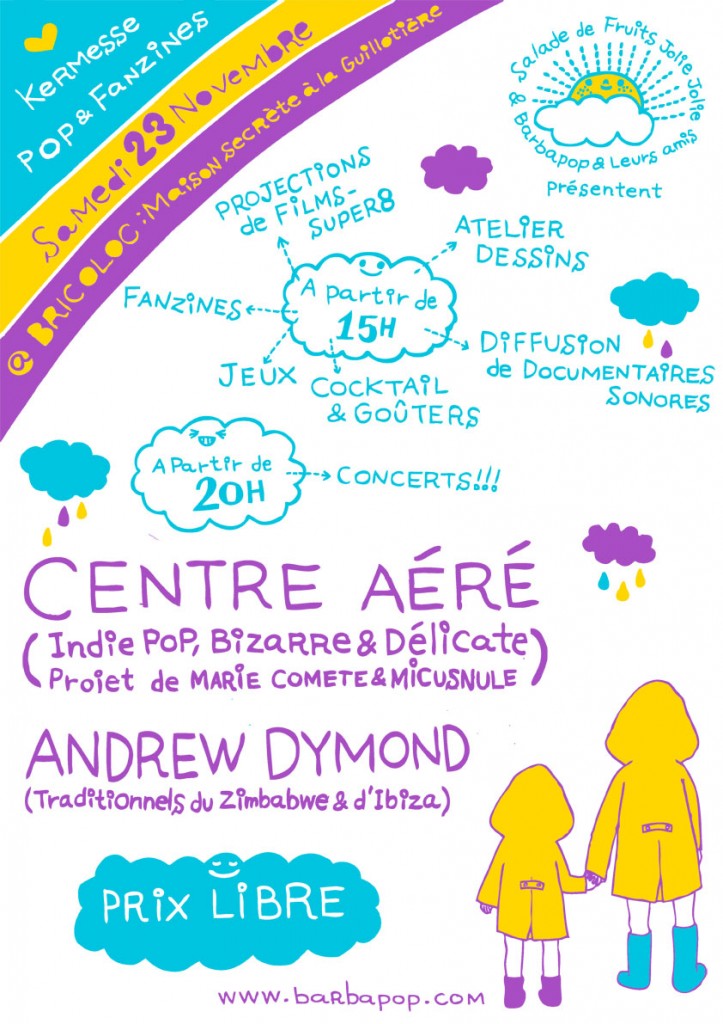 Kermesse
POP & Fanzines
Samedi 23 Novembre
@ BRICOLOC : Maison secrète à la Guillotière
Salade de Fruits Jolie Jolie
& Barbapop & Leurs amis
Présentent
PROJECTIONS
de FILMS-
SUPER8
ATELIER
DESSINS
FANZINES
A partir de
15H
DIFFUSION
de DOCUMENTAIRES
SONORES
JEUX
COCKTAIL
& GOÛTERS
A Partir de
20H
CONCERTS!!!
CENTRE AÉRÉ
(Indie POP, Bizarre & Délicate
Projet de MARIE COMETE & MICUSNULE)
ANDREW DYMOND
(Traditionnels du Zimbabwe & d'Ibiza)
PRIX LIBRE
www.barbapop.com